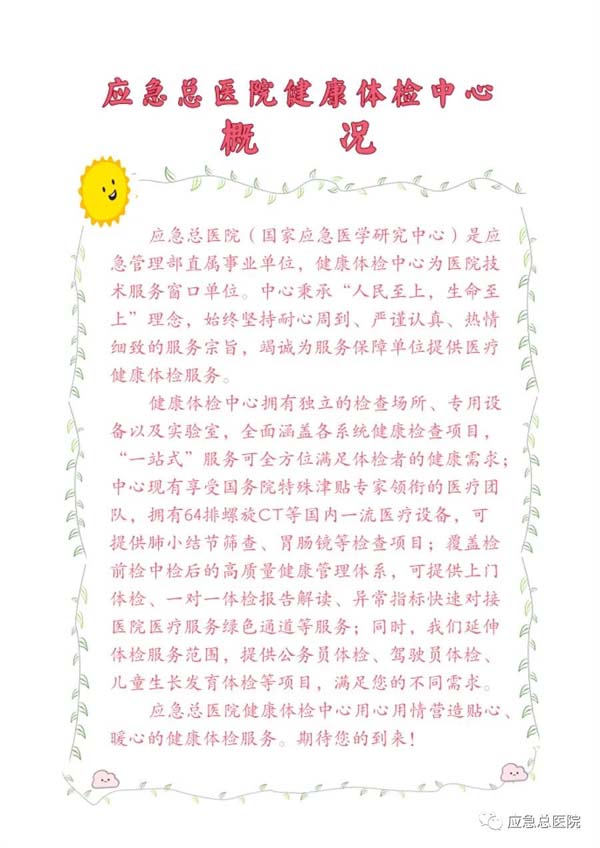 应急总医院健康体检中心
概 况
应急总医院（国家应急医学研究中心）是应
急管理部直属事业单位，健康体检中心为医院技
术服务窗口单位。中心秉承“人民至上，生命至
上”理念，始终坚持耐心周到、严谨认真、热情
细致的服务宗旨，竭诚为服务保障单位提供医疗
健康体检服务。
健康体检中心拥有独立的检查场所、专用设
备以及实验室，全面涵盖各系统健康检查项目，
“一站式”服务可全方位满足体检者的健康需求；
中心现有享受国务院特殊津贴专家领衔的医疗团
队，拥有64排螺旋CT等国内一流医疗设备，可
提供肺小结节筛查、胃肠镜等检查项目；覆盖检
前检中检后的高质量健康管理体系，可提供上门
体检、一对一体检报告解读、异常指标快速对接
医院医疗服务绿色通道等服务；同时，我们延伸
体检服务范围，提供公务员体检、驾驶员体检、
儿童生长发育体检等项目，满足您的不同需求。
应急总医院健康体检中心用心用情营造贴心、
暖心的健康体检服务。期待您的到来！
应急总医院